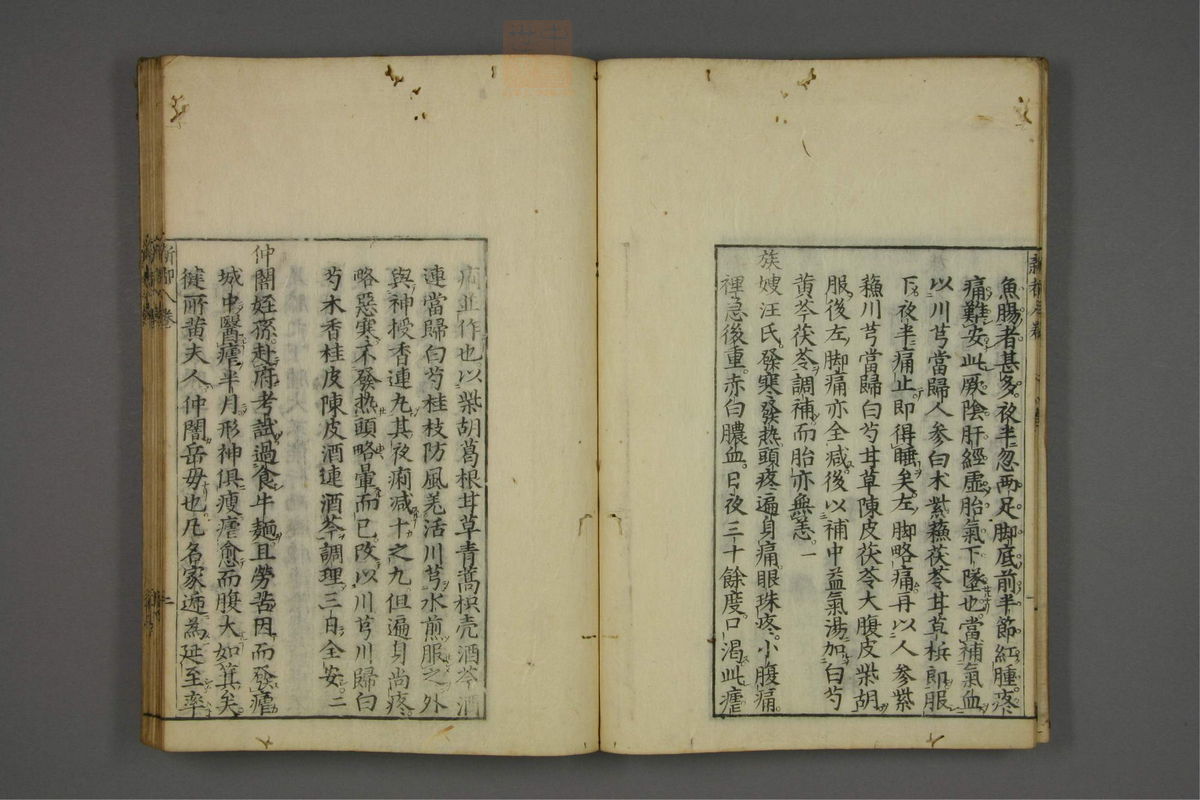 魚腸者甚多夜半忽兩足脚底前半節紅腫疼
痛難安此厥陰肝經虛胎氣下墜也當補氣血
以川芎當歸人參白朮紫蘇茯苓甘草梹郎服
下夜半痛止即得睡矣左脚略痛再以人參紫
蘇川芎當歸白芍甘草陳皮茯苓大腹皮柴胡
服後左脚痛亦全减後以補中益氣湯加白芍
黄芩茯苓調補而胎亦無恙一
族嫂汪氏發寒發熱頭疼遍身痛眼珠疼小腹痛
裡急後重赤白膿血日夜三十餘度口渴此瘧
痢並作也以柴胡葛根甘草青蒿枳壳酒芩酒
連當歸白芍桂枝防風羌活川芎水煎服之外
與神授香連丸其夜痢减十之九但遍身尚疼
略惡寒不發熱頭略暈而已改以川芎川歸白
芍木香桂皮陳皮酒連酒芩調理三日全安二
仲闇姪孫赴府考試過食牛麵且勞苦因而發瘧
城中醫瘧半月形神俱瘦瘧愈而腹大如箕矣
徤所黄夫人仲闇岳毋也凡名家遞為延至率